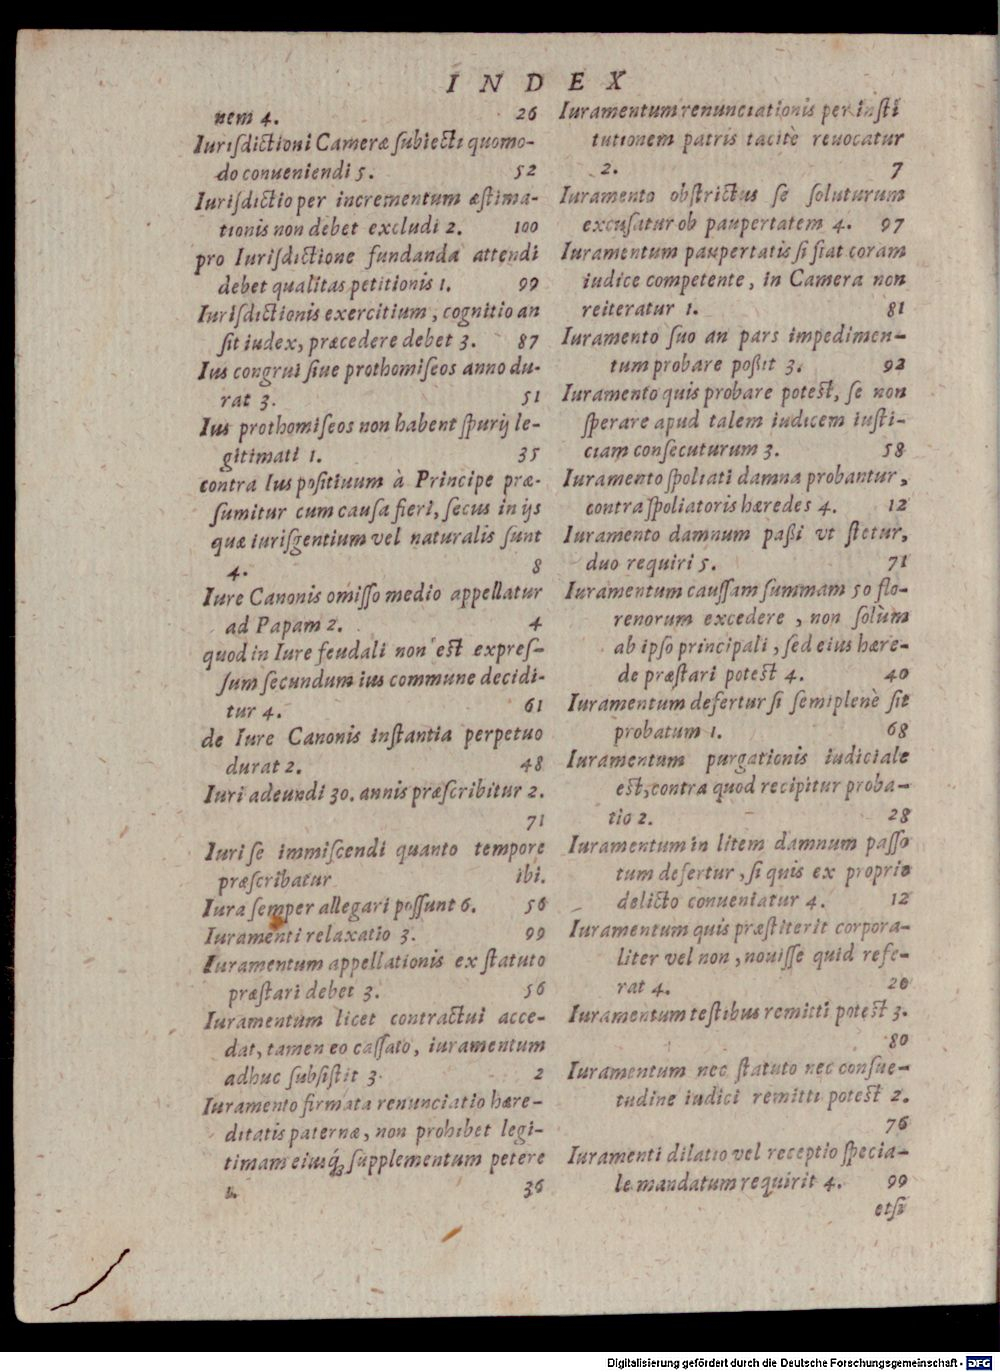 INDEX
nem 4. 26
Iurisdictioni Cameræ subiecti quomo-
do conueniendi 5. 52
Iurisdictio per incrementum æstima-
tionis non debet excludi 2. 100
pro Iurisdictione fundanda attendi
debet qualitas petitionis 1. 99
Iurisdictionis exercitium, cognitio an
sit iudex, præcedere debet 3. 87
Ius congrui siue prothomiseos anno du-
rat 3. 51
Ius prothomiseos non habent spurij le-
gitimati 1. 35
contra Ius positiuum à Principe præ-
sumitur cum causa fieri, secus in ijs
quæ iurisgentium vel naturalis sunt
4. 8
Iure Canonis omisso medio appellatur
ad Papam 2. 4
quod in Iure feudali non est expres-
sum secundum ius commune decidi-
tur 4. 61
de Iure Canonis instantia perpetuo
durat 2. 48
Iuri adeundi 30. annis præscribitur 2.
71
Iuri se immiscendi quanto tempore
præscribatur ibi.
Iura semper allegari possunt 6. 56
Iuramenti relaxatio 3. 99
Iuramentum appellationis ex statuto
præstari debet 3. 56
Iuramentum licet contractui acce-
dat, tamen eo cassato, iuramentum
adhuc subsistit 3 2
Iuramento firmata renunciatio hære-
ditatis paternæ, non prohibet legi-
timam eiusq́; supplementum petere
1. 36
Iuramentum renunciationis per insti
tutionem patris tacitè reuocatur
2. 7
Iuramento obstrictus se soluturum
excusatur ob paupertatem 4. 97
Iuramentum paupertatis si fiat coram
iudice competente, in Camera non
reiteratur 1. 81
Iuramento suo an pars impedimen-
tum probare poßit 3. 92
Iuramento quis probare potest, se non
sperare apud talem iudicem iusti-
ciam consecuturum 3. 58
Iuramento spoliati damna probantur,
contra spoliatoris hæredes 4. 12
Iuramento damnum paßi vt stetur,
duo requiri 5. 71
Iuramentum caussam summam 50 flo-
renorum excedere, non solùm
ab ipso principali, sed eius hære-
de præstari potest 4. 40
Iuramentum defertur si semiplenè sit
probatum 1. 68
Iuramentum purgationis iudiciale
est, contra quod recipitur proba-
tio 2. 28
Iuramentum in litem damnum passo
tum defertur, si quis ex proprio
delicto conueniatur 4. 12
Iuramentum quis præstiterit corpora-
liter vel non, nouisse quid refe-
rat 4. 20
Iuramentum testibus remitti potest 3.
80
Iuramentum nec statuto nec consue-
tudine iudici remitti potest 2.
76
Iuramenti dilatio vel receptio specia-
le mandatum requirit 4. 99
etsi
Digitalisierung gefördert durch die Deutsche Forschungsgemeinschaft - DFG